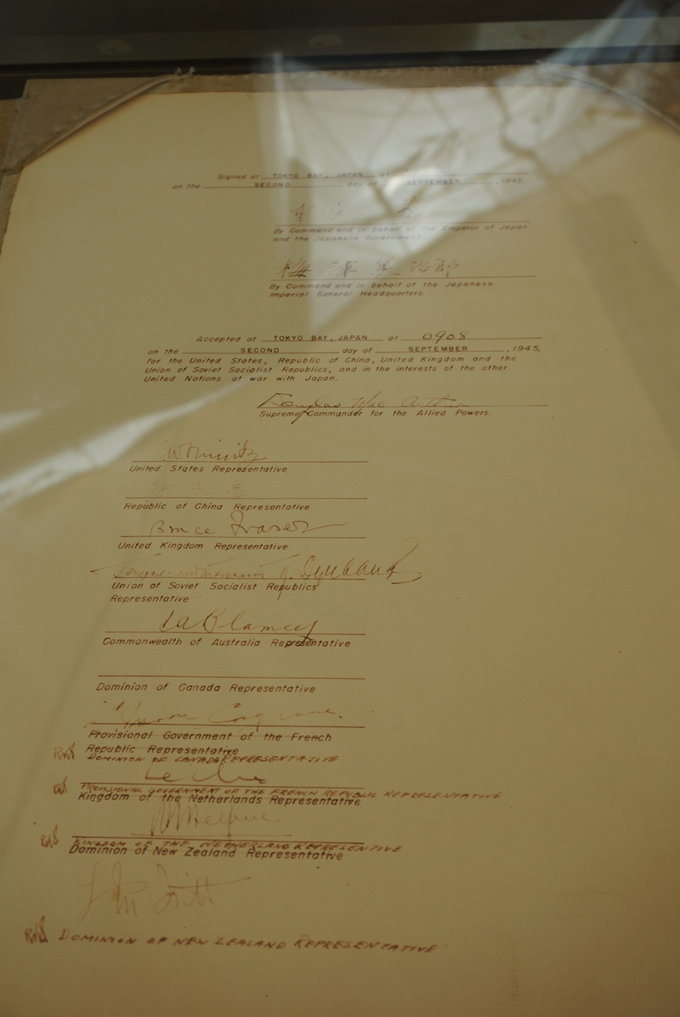 Signed at TOKYO BAY, JAPAN at
on the SECOND day of SEPTEMBER, 1945.
By Command and in behalf of the Emperor of Japan
and the Japanese Government.
梅津美治郎
By Command and in behalf of the Japanese
Imperial General Headquarters.
Accepted at TOKYO BAY, JAPAN at 0908
on the SECOND day of SEPTEMBER, 1945,
for the United States, Republic of China, United Kingdom and the
Union of Soviet Socialist Republics, and in the interests of the other
United Nations at war with Japan.
Douglas MacArthur
Supreme Commander for the Allied Powers.
CW Nimitz
United States Representative
Republic of China Representative
Bruce Fraser
United Kingdom Representative
Union of Soviet Socialist Republics
Representative
TA Blamey
Commonwealth of Australia Representative
Dominion of Canada Representative
Moore Cosgrave.
Provisional Government of the French
Republic Representative
DOMINION OF CANADA REPRESENTATIVE
Leclerc
PROVISIONAL GOVERNMENT OF THE FRENCH REPUBLIC REPRESENTATIVE
Kingdom of the Netherlands Representative
KINGDOM OF THE NETHERLANDS REPRESENTATIVE
Dominion of New Zealand Representative
L M Isitt
DOMINION OF NEW ZEALAND REPRESENTATIVE